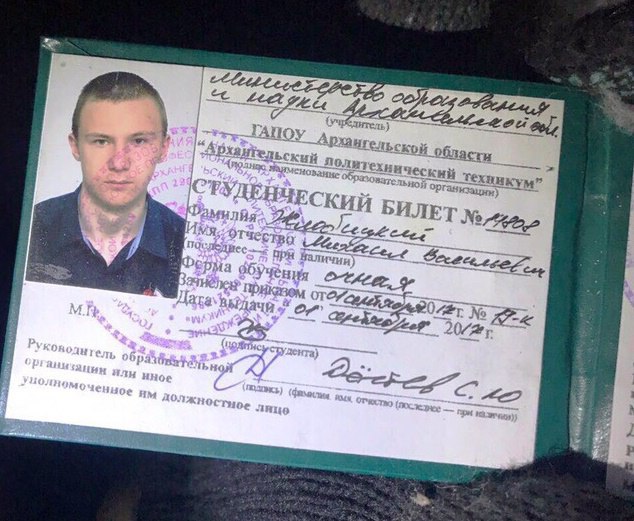 Министерство образования
и науки Архангельской обл.
(учредитель)
ГАПОУ Архангельской области
"Архангельский политехнический техникум"
(полное наименование образовательной организации)
СТУДЕНЧЕСКИЙ БИЛЕТ № 17808
Фамилия Жлобицкий
Имя, отчество Михаил Васильевич
(последнее — при наличии)
Форма обучения очная
Зачислен приказом от 01 сентября 2017 г. № 19-к
Дата выдачи 01 сентября 2017 г.
М.П.
(подпись студента)
Руководитель образовательной
организации или иное
уполномоченное им должностное лицо
С.Ю
(подпись) (фамилия, имя, отчество (последнее — при наличии))